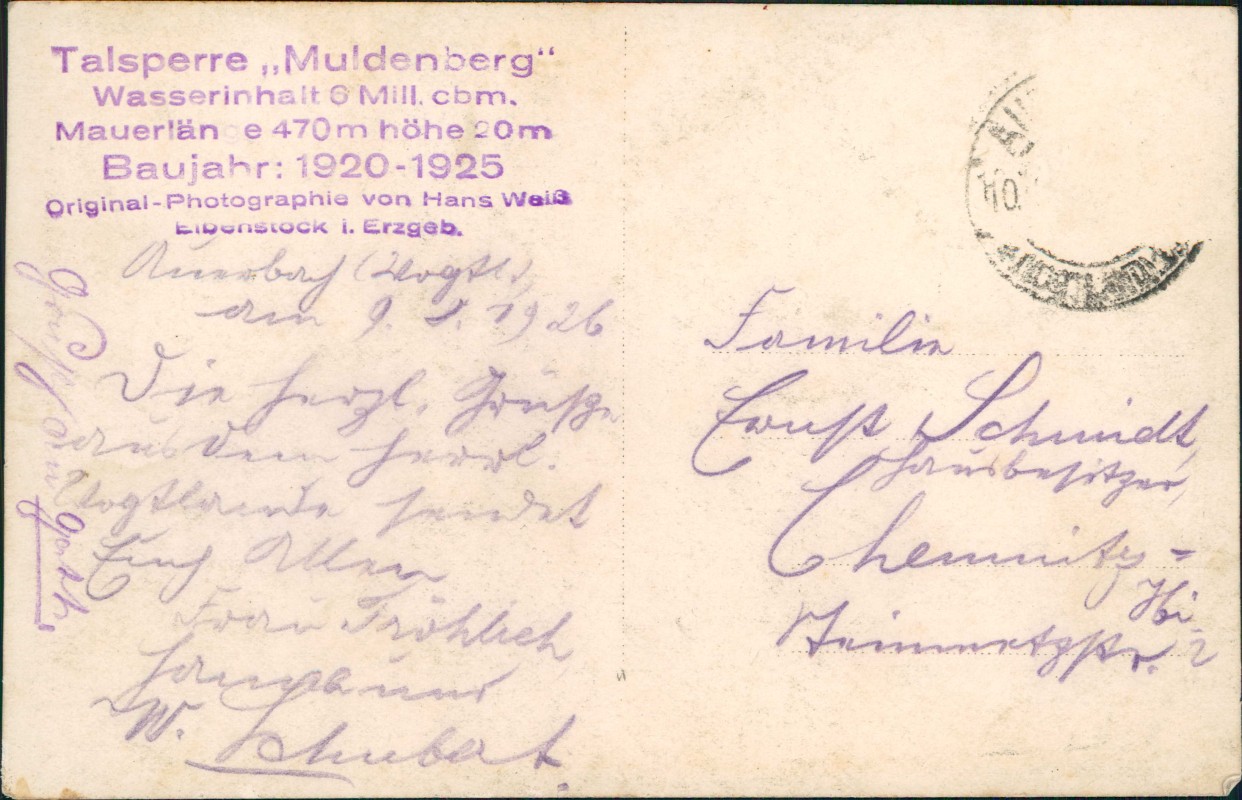 Talsperre „Muldenberg“
Wasserinhalt 6 Mill. cbm.
Mauerlän e 470m höhe 20m
Baujahr: 1920-1925
Original-Photographie von Hans Weiß
Eibenstock i. Erzgeb.
Auerbach (Vogtl.),
am 9. 1926
Die herzl. Grüße
aus dem herrl.
Vogtlande sendet
Euch Allen
Frau Fröhlich,
W. Schubert.
Familie
Ernst Schmidt,
Hausbesitzer,
Chemnitz-
Hi
Steinmetzstr. 2